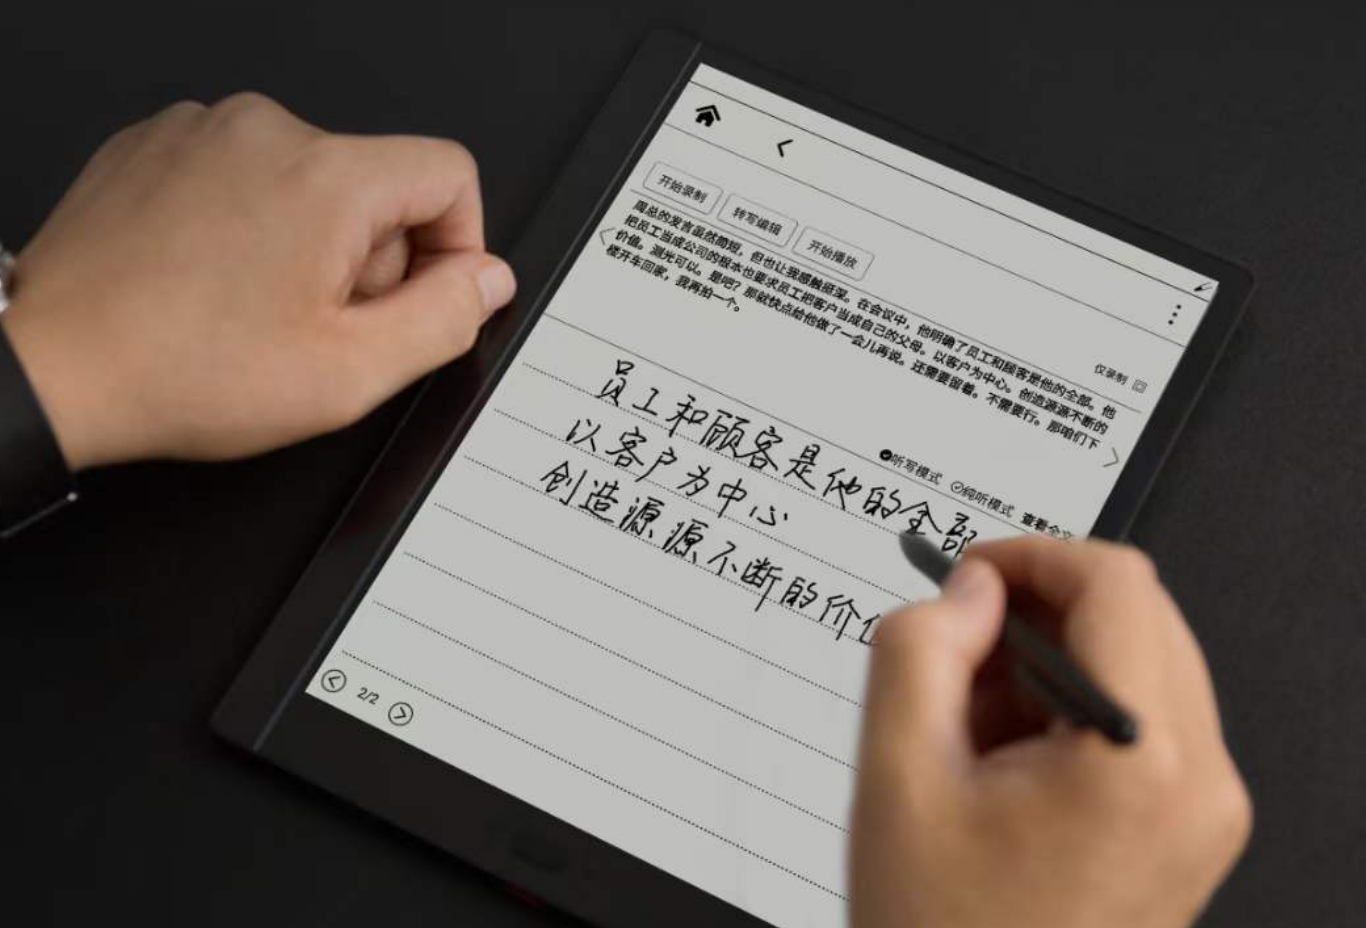 开始录制 转写编辑 开始播放
仅录制
周总的发言虽然简短，但也让我感触挺深。在会议中，他明确了员工和顾客是他的全部。他
把员工当成公司的根本也要求员工把客户当成自己的父母。以客户为中心。创造源源不断的
价值。测光可以。是吧？那就快点给他做了一会儿再说。还需要留着。不需要行。那咱们下
楼开车回家，我再拍一个。
听写模式 纯听模式 查看全文
员工和顾客是他的全部
以客户为中心
创造源源不断的价
2/2